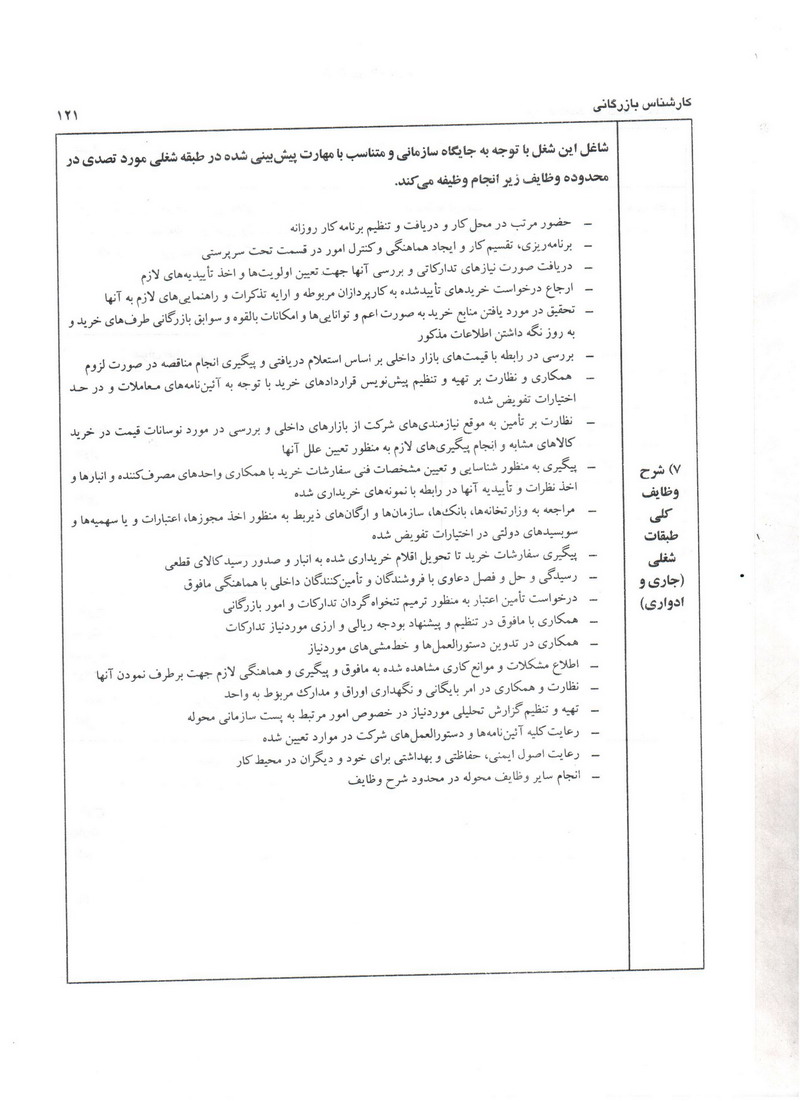 کارشناس بازرگانی
۱۲۱
شاغل این شغل با توجه به جایگاه سازمانی و متناسب با مهارت پیش‌بینی شده در طبقه شغلی مورد تصدی در
محدوده وظایف زیر انجام وظیفه می‌کند.
– حضور مرتب در محل کار و دریافت و تنظیم برنامه کار روزانه
– برنامه‌ریزی، تقسیم کار و ایجاد هماهنگی و کنترل امور در قسمت تحت سرپرستی
– دریافت صورت نیازهای تدارکاتی و بررسی آنها جهت تعیین اولویت‌ها و اخذ تأییدیه‌های لازم
– ارجاع درخواست خریدهای تأییدشده به کارپردازان مربوطه و ارایه تذکرات و راهنمایی‌های لازم به آنها
– تحقیق در مورد یافتن منابع خرید به صورت اعم و توانایی‌ها و امکانات بالقوه و سوابق بازرگانی طرف‌های خرید و
به روز نگه داشتن اطلاعات مذکور
– بررسی در رابطه با قیمت‌های بازار داخلی بر اساس استعلام دریافتی و پیگیری انجام مناقصه در صورت لزوم
– همکاری و نظارت بر تهیه و تنظیم پیش‌نویس قراردادهای خرید با توجه به آئین‌نامه‌های معاملات و در حد
اختیارات تفویض شده
– نظارت بر تأمین به موقع نیازمندی‌های شرکت از بازارهای داخلی و بررسی در مورد نوسانات قیمت در خرید
کالاهای مشابه و انجام پیگیری‌های لازم به منظور تعیین علل آنها
– پیگیری به منظور شناسایی و تعیین مشخصات فنی سفارشات خرید با همکاری واحدهای مصرف‌کننده و انبارها و
اخذ نظرات و تأییدیه آنها در رابطه با نمونه‌های خریداری شده
– مراجعه به وزارتخانه‌ها، بانک‌ها، سازمان‌ها و ارگان‌های ذیربط به منظور اخذ مجوزها، اعتبارات و یا سهمیه‌ها و
سوبسیدهای دولتی در اختیارات تفویض شده
– پیگیری سفارشات خرید تا تحویل اقلام خریداری شده به انبار و صدور رسید کالای قطعی
– رسیدگی و حل و فصل دعاوی با فروشندگان و تأمین‌کنندگان داخلی با هماهنگی مافوق
– درخواست تأمین اعتبار به منظور ترمیم تنخواه گردان تدارکات و امور بازرگانی
– همکاری با مافوق در تنظیم و پیشنهاد بودجه ریالی و ارزی موردنیاز تدارکات
– همکاری در تدوین دستورالعمل‌ها و خط‌مشی‌های موردنیاز
– اطلاع مشکلات و موانع کاری مشاهده شده به مافوق و پیگیری و هماهنگی لازم جهت برطرف نمودن آنها
– نظارت و همکاری در امر بایگانی و نگهداری اوراق و مدارک مربوط به واحد
– تهیه و تنظیم گزارش تحلیلی موردنیاز در خصوص امور مرتبط به پست سازمانی محوله
– رعایت کلیه آئین‌نامه‌ها و دستورالعمل‌های شرکت در موارد تعیین شده
– رعایت اصول ایمنی، حفاظتی و بهداشتی برای خود و دیگران در محیط کار
– انجام سایر وظایف محوله در محدود شرح وظایف
۷) شرح
وظایف
کلی
طبقات
شغلی
(جاری و
ادواری)